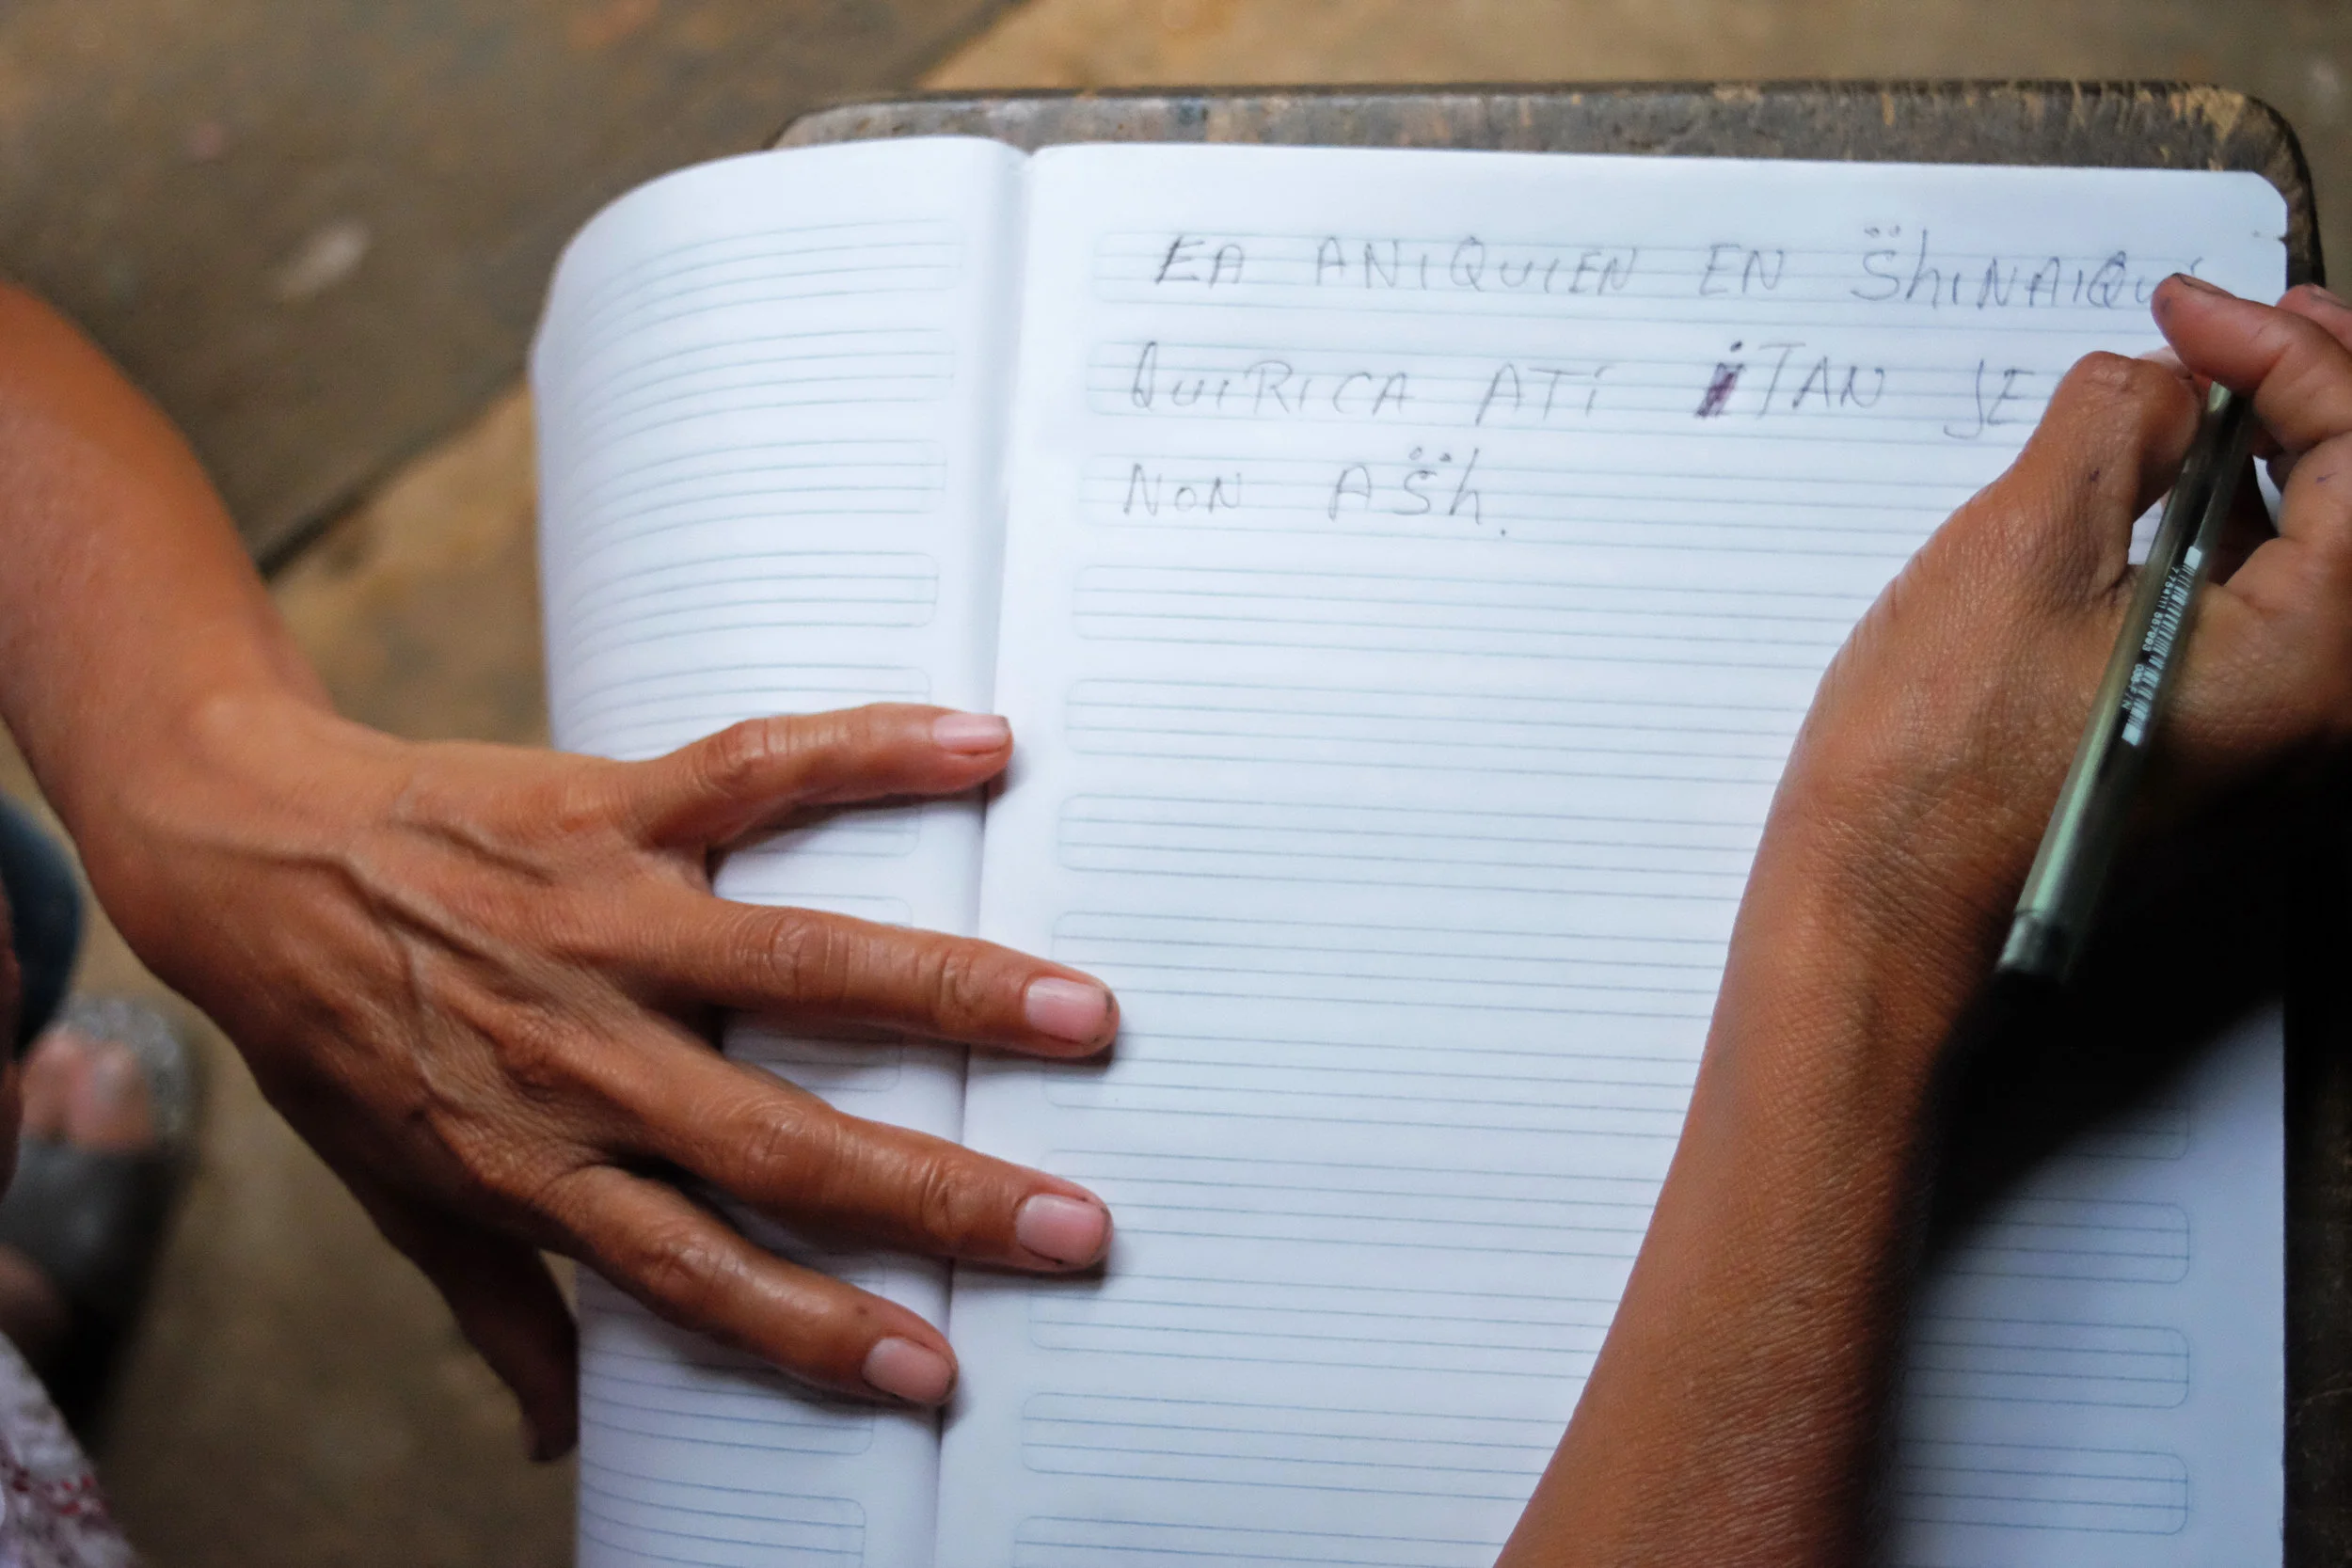 EA ANIQUIEN EN S̈hINAIQUI
QUIRICA ATI ITAN JE
NON AS̈h.